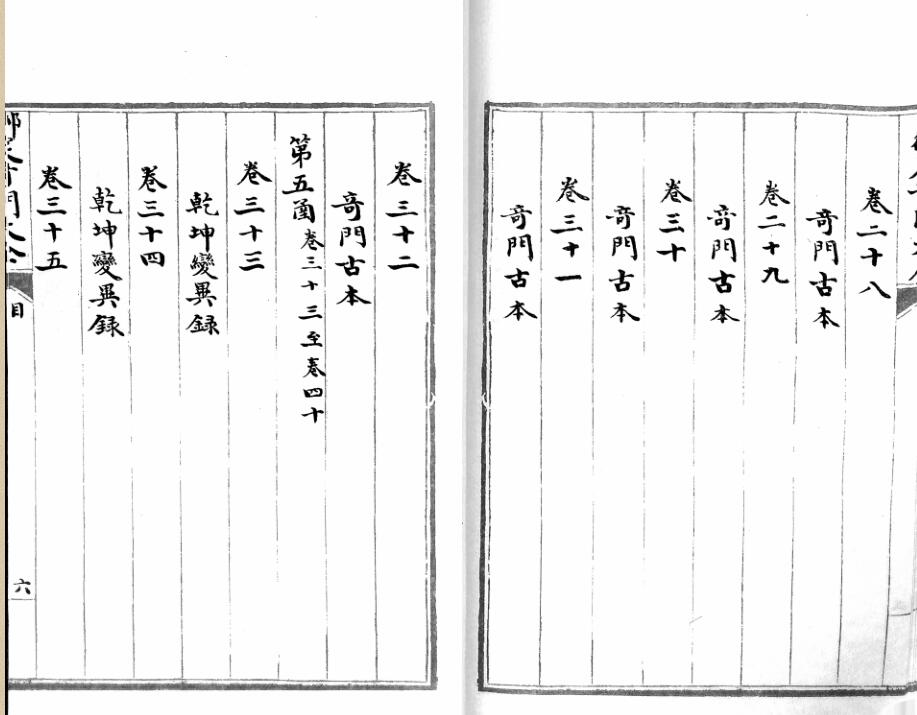 卷二十八
奇門古本
卷二十九
奇門古本
卷三十
奇門古本
卷三十一
奇門古本
卷三十二
奇門古本
第五函 卷三十三至卷四十
卷三十三
乾坤變異録
卷三十四
乾坤變異録
卷三十五
目
六